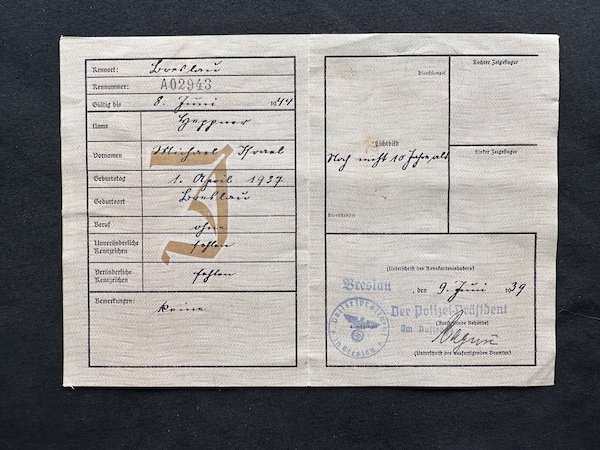 Kennort: Breslau
Kennummer: A02943
Gültig bis 8. Juni 1944
Name Heppner
Vornamen Michael Israel
Geburtstag 1. April 1937
Geburtsort Breslau
Beruf ohne
Unveränderliche Kennzeichen fehlen
Veränderliche Kennzeichen fehlen
Bemerkungen: keine
J
Dienststempel
Rechter Zeigefinger
Lichtbild
Noch nicht 10 Jahre alt
Linker Zeigefinger
Dienststempel
(Unterschrift des Kennkarteninhabers)
Breslau, den 9. Juni 1939
Der Polizei-Präsident
(Ausstellende Behörde)
Im Auftrage
(Unterschrift des ausfertigenden Beamten)
Polizeipräsident
in Breslau